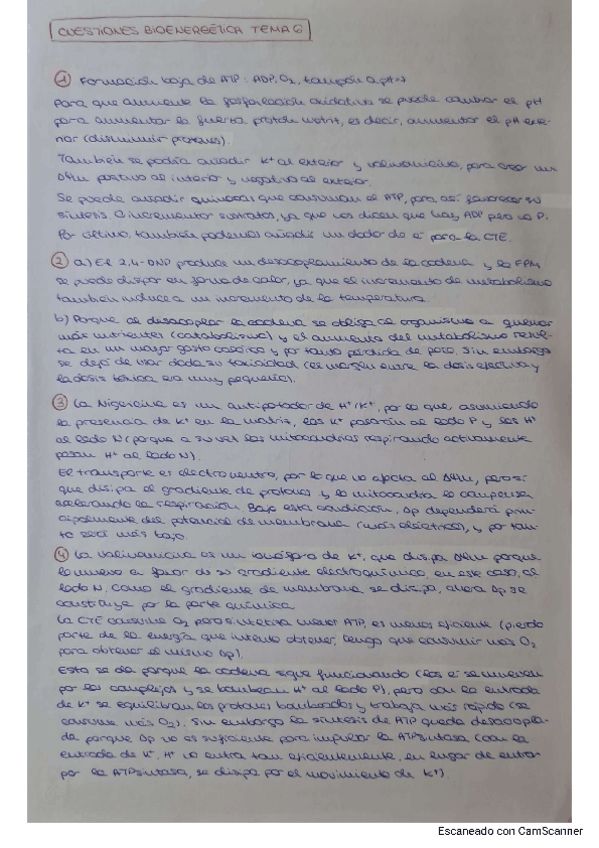 CUESTIONES BIOENERGÉTICA TEMA 6
① Formación baja de ATP: ADP, O₂, tampón a pH=7
Para que aumente la fosforilación oxidativa se puede cambiar el pH
para aumentar la fuerza protón motriz, es decir, aumentar el pH exte-
rior (disminuir protones).
También se podría añadir K⁺ al exterior y valinomicina, para crear un
ΔΨm positivo al interior y negativo al exterior.
Se puede añadir que consuman el ATP, para así favorecer su
síntesis. O incrementar sustratos, ya que nos dicen que hay ADP pero no P.
Por último, también podemos añadir un dador de e⁻ para la CTE.
② a) El 2,4-DNP produce un desacoplamiento de la cadena y la FPM
se puede disipar en forma de calor, ya que el incremento de metabolismo
también induce a un incremento de la temperatura.
b) Porque al desacoplar la cadena se obliga al organismo a quemar
más nutrientes (catabolismo) y el aumento del metabolismo resul-
ta en un mayor gasto calórico y por tanto pérdida de peso. Sin embargo
se dejó de usar dada su toxicidad (el margen entre la dosis efectiva y
la dosis tóxica era muy pequeño).
③ La Nigericina es un antiportador de H⁺/K⁺, por lo que, asumiendo
la presencia de K⁺ en la matriz, los K⁺ pasarán al lado P y los H⁺
al lado N (porque a su vez las mitocondrias respirando activamente
pasan H⁺ al lado N).
El transporte es electroneutro, por lo que no afecta al ΔΨm, pero sí
que disipa el gradiente de protones y la mitocondria lo compensa
acelerando la respiración. Bajo esta condición, Δp dependerá prin-
cipalmente del potencial de membrana (más eléctrico), y por tan-
to será más bajo.
④ La valinomicina es un ionóforo de K⁺, que disipa ΔΨm porque
lo mueve a favor de su gradiente electroquímico, en este caso, al
lado N. Como el gradiente de membrana se disipa, ahora Δp se
constituye por la parte química.
La CTE consume O₂ pero sintetiza menor ATP, es menos eficiente (pierdo
parte de la energía que intento obtener, tengo que consumir más O₂
para obtener el mismo Δp).
Esto se da porque la cadena sigue funcionando (los e⁻ se mueven
por los complejos y se bombean H⁺ al lado P), pero con la entrada
de K⁺ se equilibran los protones bombeados y trabaja más rápido (se
consume más O₂). Sin embargo la síntesis de ATP queda desacopla-
da porque Δp no es suficiente para impulsar la ATPsintasa (con la
entrada de K⁺, H⁺ no entra tan eficientemente, en lugar de entrar
por la ATPsintasa, se disipa por el movimiento de K⁺).
Escaneado con CamScanner